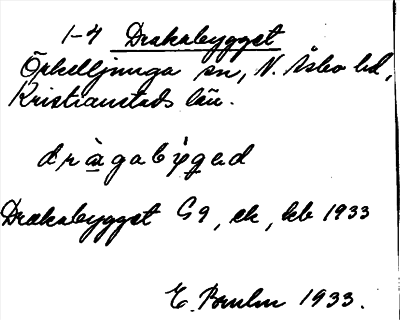 1-4 Drakabygget
Örkelljunga sn, N. Åsbo hd,
Kristianstads län.
dràgabýgəd
Drakabygget G9, ek, kb 1933
E. 1933.